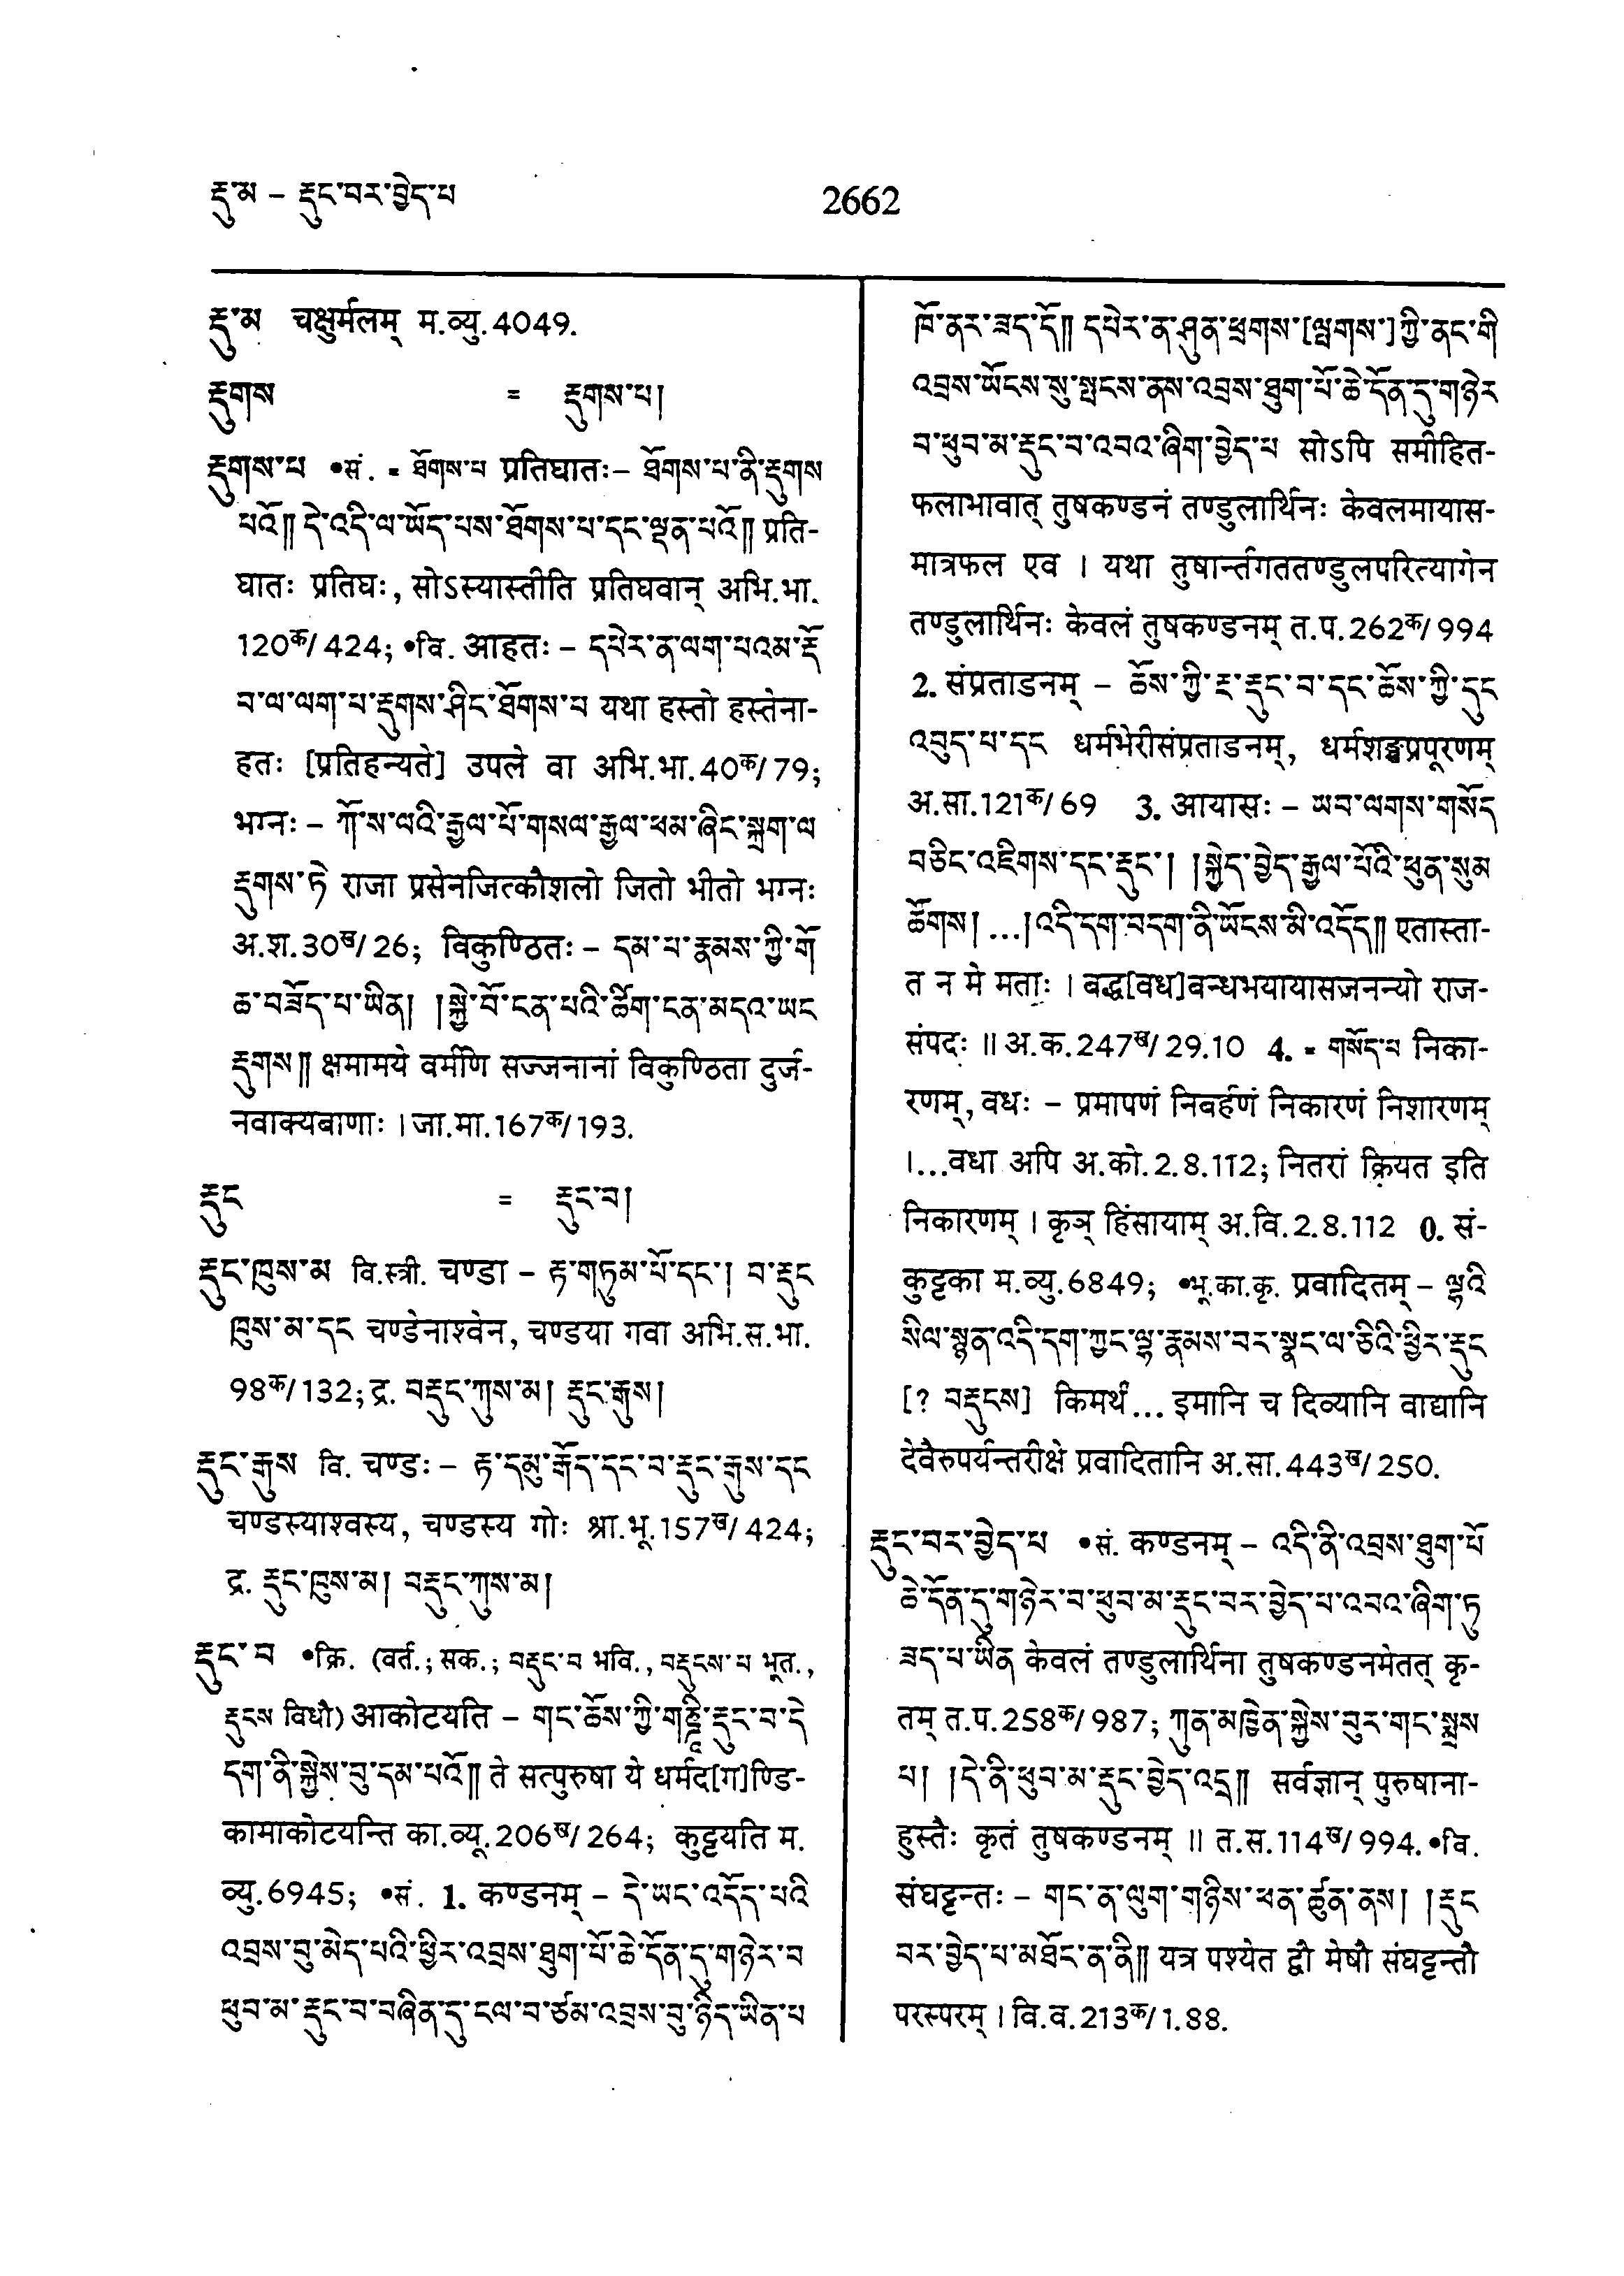 རྡུ་མ – རྡུང་བར་བྱེད་པ
2662
རྡུ་མ चक्षुर्मलम् म.व्यु.4049.
རྡུགས = རྡུགས་པ།
རྡུགས་པ •सं. = ཐོགས་པ प्रतिघातः– ཐོགས་པ་ནི་རྡུགས
པའོ༎ དེ་འདི་ལ་ཡོད་པས་ཐོགས་པ་དང་ལྡན་པའོ༎ प्रति-
घातः प्रतिघः, सोऽस्यास्तीति प्रतिघवान् अभि.भा.
120क/424; •वि. आहतः – དཔེར་ན་ལག་པའམ་རྡོ
བ་ལ་ལག་པ་རྡུགས་ཤིང་ཐོགས་པ यथा हस्तो हस्तेना-
हतः [प्रतिहन्यते] उपले वा अभि.भा.40क/79;
भग्नः – ཀོ་ས་ལའི་རྒྱལ་པོ་གསལ་རྒྱལ་ཕམ་ཞིང་སྐྲག་ལ
རྡུགས་ཏེ राजा प्रसेनजित्कौशलो जितो भीतो भग्नः
अ.श.30ख/26; विकुण्ठितः – དམ་པ་རྣམས་ཀྱི་གོ
ཆ་བཟོད་པ་ཡིན། །སྐྱེ་བོ་ངན་པའི་ཚིག་ངན་མདའ་ཡང
རྡུགས༎ क्षमामये वर्मणि सज्जनानां विकुण्ठिता दुर्ज-
नवाक्यबाणाः । जा.मा.167क/193.
རྡུང = རྡུང་བ།
རྡུང་ཁུས་མ वि.स्त्री. चण्डा – རྟ་གཏུམ་པོ་དང་། བ་རྡུང
ཁུས་མ་དང चण्डेनाश्वेन, चण्डया गवा अभि.स.भा.
98क/132; द्र. བརྡུང་ཀུས་མ། རྡུང་རྒུས།
རྡུང་རྒུས वि. चण्डः – རྟ་དམུ་རྒོད་དང་བ་རྡུང་རྒུས་དང
चण्डस्याश्वस्य, चण्डस्य गोः श्रा.भू.157ख/424;
द्र. རྡུང་ཁུས་མ། བརྡུང་ཀུས་མ།
རྡུང་བ •क्रि. (वर्त.; सक.; བརྡུང་བ भवि., བརྡུངས་པ भूत.,
རྡུངས विधौ) आकोटयति – གང་ཆོས་ཀྱི་གཎྜཱི་རྡུང་བ་དེ
དག་ནི་སྐྱེས་བུ་དམ་པའོ༎ ते सत्पुरुषा ये धर्मद[ग]ण्डि-
कामाकोटयन्ति का.व्यू.206ख/264; कुट्टयति म.
व्यु.6945; •सं. 1. कण्डनम् – དེ་ཡང་འདོད་པའི
འབྲས་བུ་མེད་པའི་ཕྱིར་འབྲས་ཐུག་པོ་ཆེ་དོན་དུ་གཉེར་བ
ཕུབ་མ་རྡུང་བ་བཞིན་དུ་ངལ་བ་ཙམ་འབྲས་བུ་ཉིད་ཡིན་པ
ཁོ་ནར་ཟད་དོ༎ དཔེར་ན་ཤུན་ཕྲགས་[ལྤགས་]ཀྱི་ནང་གི
འབྲས་ཡོངས་སུ་སྤངས་ནས་འབྲས་ཐུག་པོ་ཆེ་དོན་དུ་གཉེར
བ་ཕུབ་མ་རྡུང་བ་འབའ་ཞིག་བྱེད་པ सोऽपि समीहित-
फलाभावात् तुषकण्डनं तण्डुलार्थिनः केवलमायास-
मात्रफल एव । यथा तुषार्न्तगततण्डुलपरित्यागेन
तण्डुलार्थिनः केवलं तुषकण्डनम् त.प.262क/994
2. संप्रताडनम् – ཆོས་ཀྱི་རྔ་རྡུང་བ་དང་ཆོས་ཀྱི་དུང
འབུད་པ་དང धर्मभेरीसंप्रताडनम्, धर्मशङ्खप्रपूरणम्
अ.सा.121क/69 3. आयासः – ཡབ་ལགས་གསོད
བཅིང་འཇིགས་དང་རྡུང་། །སྐྱེད་བྱེད་རྒྱལ་པོའི་ཕུན་སུམ
ཚོགས། ...།འདི་དག་བདག་ནི་ཡོངས་མི་འདོད༎ एतास्ता-
त न मे मताः । बद्ध[वध]बन्धभयायासजनन्यो राज-
संपदः ॥ अ.क.247ख/29.10 4. = གསོད་པ निका-
रणम्, वधः – प्रमापणं निबर्हणं निकारणं निशारणम्
।...वधा अपि अ.को.2.8.112; नितरां क्रियत इति
निकारणम् । कृञ् हिंसायाम् अ.वि.2.8.112 0. सं-
कुट्टका म.व्यु.6849; •भू.का.कृ. प्रवादितम् – ལྷའི
སིལ་སྙན་འདི་དག་ཀྱང་ལྷ་རྣམས་བར་སྣང་ལ་ཅིའི་ཕྱིར་རྡུང
[? བརྡུངས] किमर्थं... इमानि च दिव्यानि वाद्यानि
देवैरुपर्यन्तरीक्षे प्रवादितानि अ.सा.443ख/250.
རྡུང་བར་བྱེད་པ •सं. कण्डनम् – འདི་ནི་འབྲས་ཐུག་པོ
ཆེ་དོན་དུ་གཉེར་བ་ཕུབ་མ་རྡུང་བར་བྱེད་པ་འབའ་ཞིག་ཏུ
ཟད་པ་ཡིན केवलं तण्डुलार्थिना तुषकण्डनमेतत् कृ-
तम् त.प.258क/987; ཀུན་མཁྱེན་སྐྱེས་བུར་གང་སྨྲས
པ། །དེ་ནི་ཕུབ་མ་རྡུང་བྱེད་འདྲ༎ सर्वज्ञान् पुरुषाना-
हुस्तैः कृतं तुषकण्डनम् ॥ त.स.114ख/994. •वि.
संघट्टन्तः – གང་ན་ལུག་གཉིས་ཕན་ཚུན་ནས། །རྡུང
བར་བྱེད་པ་མཐོང་ན་ནི༎ यत्र पश्येत द्वौ मेषौ संघट्टन्तौ
परस्परम् । वि.व.213क/1.88.